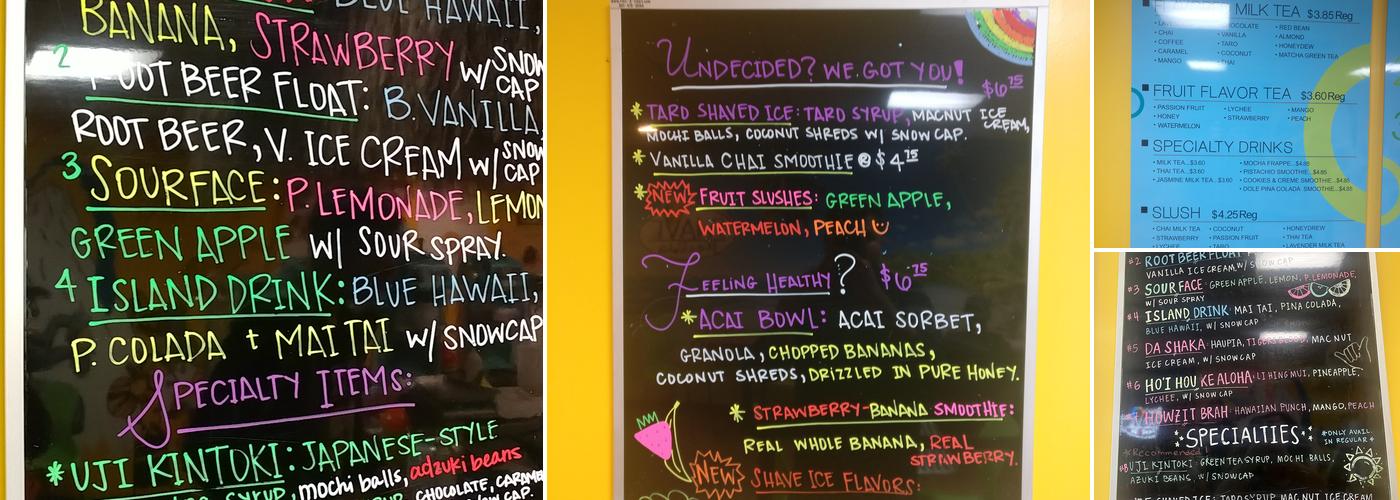 BLUE HAWAII,
BANANA, STRAWBERRY W/ SNOW CAP
2 ROOT BEER FLOAT: B. VANILLA,
ROOT BEER, V. ICE CREAM W/ SNOW CAP
3 SOURFACE: P. LEMONADE, LEMON
GREEN APPLE W/ SOUR SPRAY.
4 ISLAND DRINK: BLUE HAWAII,
P. COLADA + MAI TAI W/ SNOWCAP
SPECIALTY ITEMS:
*UJI KINTOKI: JAPANESE-STYLE
SYRUP, mochi balls, adzuki beans
CHOCOLATE, CARAMEL
UNDECIDED? WE GOT YOU! $6.75
* TARO SHAVED ICE: TARO SYRUP, MACNUT ICE CREAM,
MOCHI BALLS, COCONUT SHREDS W/ SNOW CAP.
* VANILLA CHAI SMOOTHIE @ $4.75
* NEW FRUIT SLUSHES: GREEN APPLE,
WATERMELON, PEACH
FEELING HEALTHY? $6.75
* ACAI BOWL: ACAI SORBET,
GRANOLA, CHOPPED BANANAS,
COCONUT SHREDS, DRIZZLED IN PURE HONEY.
* STRAWBERRY-BANANA SMOOTHIE:
REAL WHOLE BANANA, REAL STRAWBERRY.
NEW SHAVE ICE FLAVORS:
MILK TEA $3.85 Reg
• CHAI • VANILLA • ALMOND
• COFFEE • TARO • HONEYDEW
• CARAMEL • COCONUT • MATCHA GREEN TEA
• MANGO
• RED BEAN
FRUIT FLAVOR TEA $3.60 Reg
• PASSION FRUIT • LYCHEE • MANGO
• HONEY • STRAWBERRY • PEACH
• WATERMELON
SPECIALTY DRINKS
• MILK TEA...$3.60 • MOCHA FRAPPE...$4.85
• THAI TEA...$3.60 • PISTACHIO SMOOTHIE...$4.85
• JASMINE MILK TEA...$3.60 • COOKIES & CREME SMOOTHIE...$4.85
• DOLE PINA COLADA SMOOTHIE...$4.85
SLUSH $4.25 Reg
• CHAI MILK TEA • COCONUT • HONEYDEW
• STRAWBERRY • PASSION FRUIT • THAI TEA
• LYCHEE • TARO • LAVENDER MILK TEA
#2 ROOT BEER FLOAT
VANILLA ICE CREAM, W/ SNOW CAP
#3 SOUR FACE: GREEN APPLE, LEMON, P. LEMONADE,
W/ SOUR SPRAY
#4 ISLAND DRINK: MAI TAI, PINA COLADA,
BLUE HAWAII, W/ SNOWCAP
#5 DA SHAKA: HAUPIA, TIGERS BLOOD, MAC NUT
ICE CREAM, W/ SNOWCAP
#6 HO'I HOU KE ALOHA: LI HING MUI, PINEAPPLE,
LYCHEE, W/ SNOW CAP
HOWZIT BRAH: HAWAIIAN PUNCH, MANGO, PEACH
SPECIALTIES *ONLY AVAIL. IN REGULAR*
*Recommended!
UJI KINTOKI: GREEN TEA SYRUP, MOCHI BALLS,
AZUKI BEANS, W/ SNOWCAP
SHAVED ICE: TARO SYRUP, MAC NUT ICE